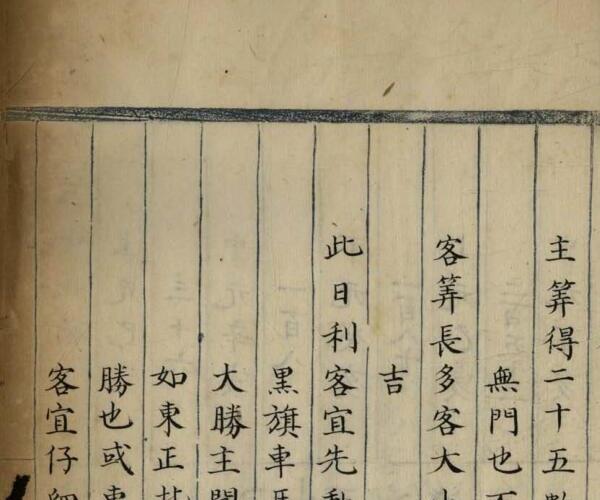 主筭得二十五
無門也
客筭長多客大
吉
此日利客宜先動
黒旗車
大勝主
如東正
勝也或
客宜仔細